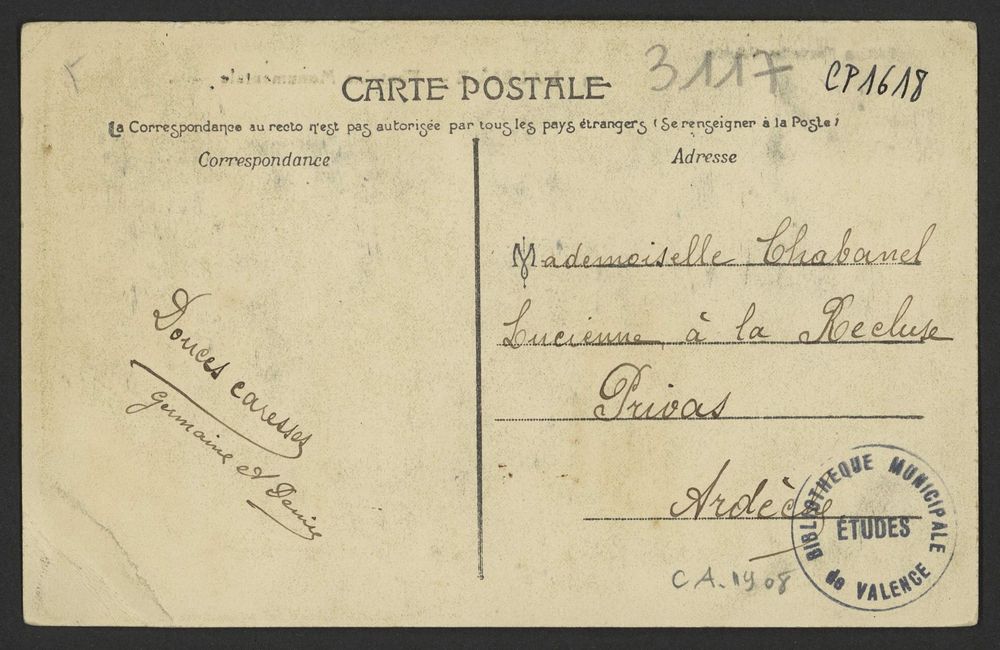 3117
CP1618
CARTE POSTALE
La Correspondance au recto n'est pas autorisée par tous les pays étrangers (Se renseigner à la Poste)
Correspondance
Adresse
Mademoiselle Chabanel
Lucienne, à la Recluse
Privas
Ardèche
Douces caresses
Germaine et Denise
BIBLIOTHEQUE MUNICIPALE
ÉTUDES
de VALENCE
CA. 1908